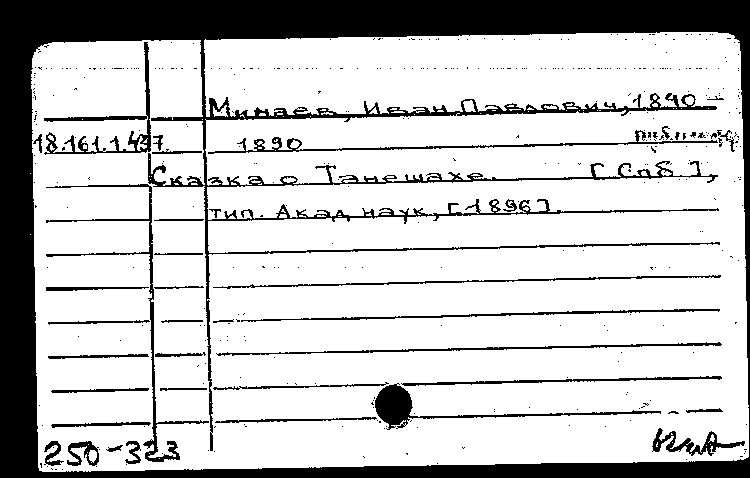 Минаев, Иван Павлович, 1840-
18.161.1.437 1890 публикац
Сказка о Танешахе. [Спб],
тип. Акад наук, [1896].
250-323